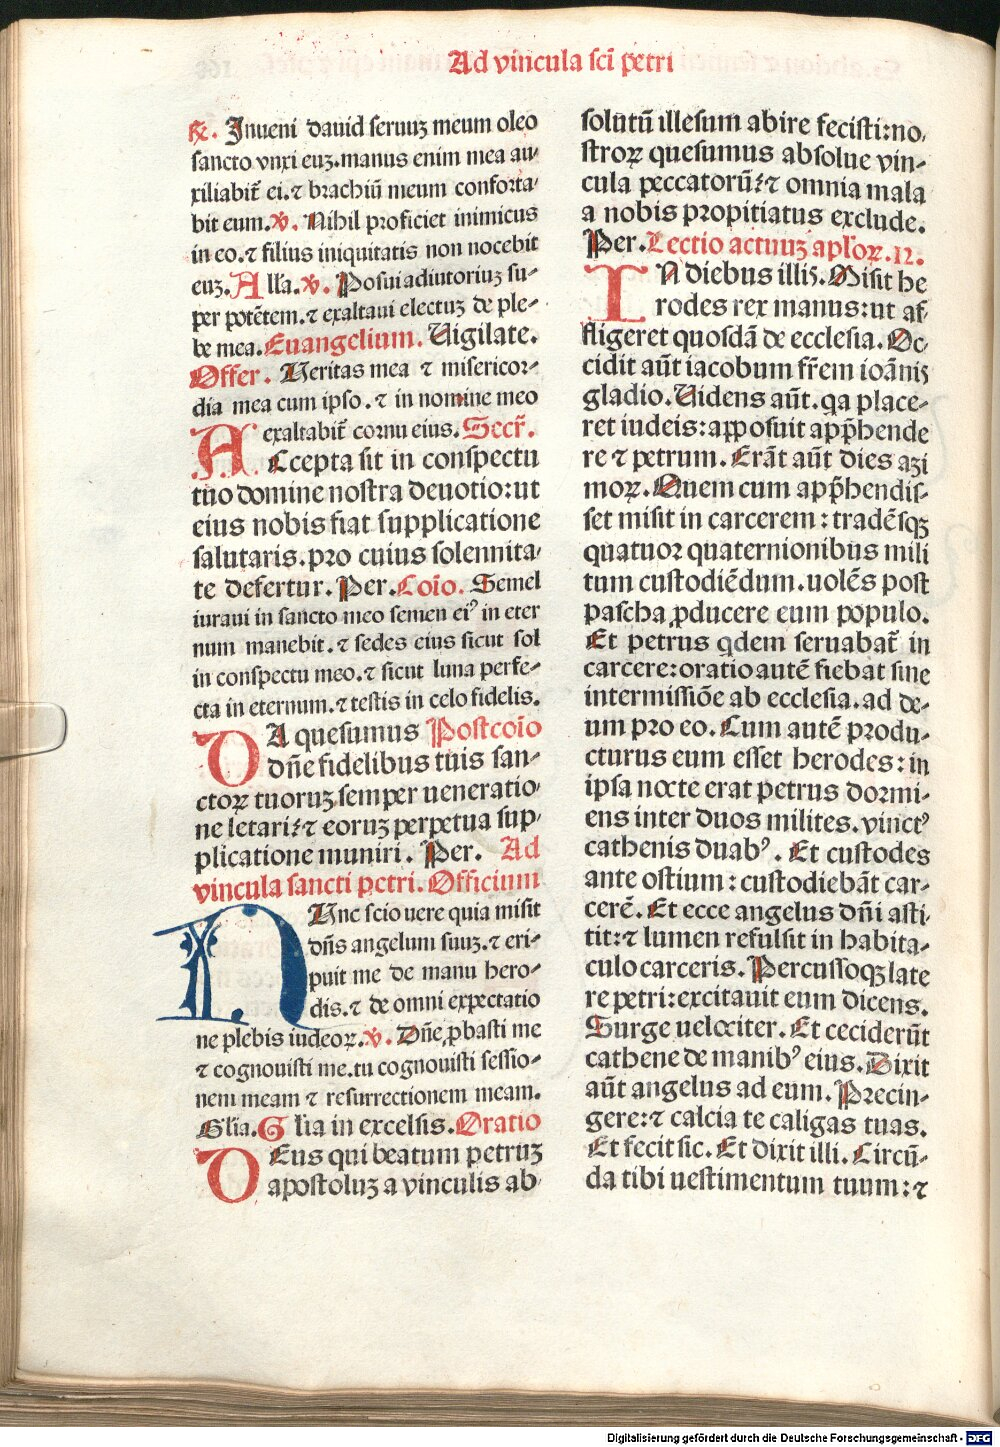 Ad vincula sci petri
℞. Inueni dauid seruuꝫ meum oleo
sancto vnxi euꝫ. manus enim mea au-
xiliabit̄ ei. ⁊ brachiū meum conforta-
bit eum. ℣. Nihil proficiet inimicus
in eo. ⁊ filius iniquitatis non nocebit
euꝫ. Alła. ℣. Posui adiutoriuꝫ su-
per potētem. ⁊ exaltaui electuꝫ de ple-
be mea. Euangelium. Uigilate.
Offer. Ueritas mea ⁊ misericor-
dia mea cum ipso. ⁊ in nomine meo
exaltabit̄ cornu eius. Secr̄.
ACcepta sit in conspectu
tuo domine nostra deuotio: ut
eius nobis fiat supplicatione
salutaris. pro cuius solennita-
te defertur. Per. Coīo. Semel
iuraui in sancto meo semen eiꝰ in eter
num manebit. ⁊ sedes eius sicut sol
in conspectu meo. ⁊ sicut luna perfe-
cta in eternum. ⁊ testis in celo fidelis.
DA quesumus Postcoīo
dn̄e fidelibus tuis san-
ctoꝝ tuoruꝫ semper ueneratio-
ne letari: ⁊ eoruꝫ perpetua sup-
plicatione muniri. Per. Ad
vincula sancti petri. Officium
NUnc scio uere quia misit
dn̄s angelum suuꝫ. ⁊ eri-
puit me de manu hero-
dis. ⁊ de omni expectatio
ne plebis iudeoꝝ. ℣. Dn̄e ꝓbasti me
⁊ cognouisti me. tu cognouisti sessio-
nem meam ⁊ resurrectionem meam.
Glia. Glia in excelsis. Oratio
DEus qui beatum petruꝫ
apostoluꝫ a vinculis ab-
solutū illesum abire fecisti: no-
stroꝝ quesumus absolue vin-
cula peccatorū: ⁊ omnia mala
a nobis propitiatus exclude.
Per. Lectio actuuꝫ apl'oꝝ. 12.
IN diebus illis. Misit he
rodes rex manus: ut af
fligeret quosdā de ecclesia. Oc-
cidit aūt iacobum fr̄em ioānis
gladio. Uidens aūt. qa place-
ret iudeis: apposuit app̄hende
re ⁊ petrum. Erāt aūt dies azi
moꝝ. Quem cum app̄hendis-
set misit in carcerem: tradēsqꝫ
quatuor quaternionibus mili
tum custodiēdum. uolēs post
pascha ꝓducere eum populo.
Et petrus qdem seruabat̄ in
carcere: oratio autē fiebat sine
intermissiōe ab ecclesia. ad de-
um pro eo. Cum autē produ-
cturus eum esset herodes: in
ipsa nocte erat petrus dormi-
ens inter duos milites. vinctꝰ
cathenis duabꝰ. Et custodes
ante ostium: custodiebāt car-
cerē. Et ecce angelus dn̄i asti-
tit: ⁊ lumen refulsit in habita-
culo carceris. Percussoqꝫ late
re petri: excitauit eum dicens.
Surge uelociter. Et ceciderūt
cathene de manibꝰ eius. Dixit
aūt angelus ad eum. Precin-
gere: ⁊ calcia te caligas tuas.
Et fecit sic. Et dixit illi. Circū-
da tibi uestimentum tuum: ⁊
Digitalisierung gefördert durch die Deutsche Forschungsgemeinschaft - DFG